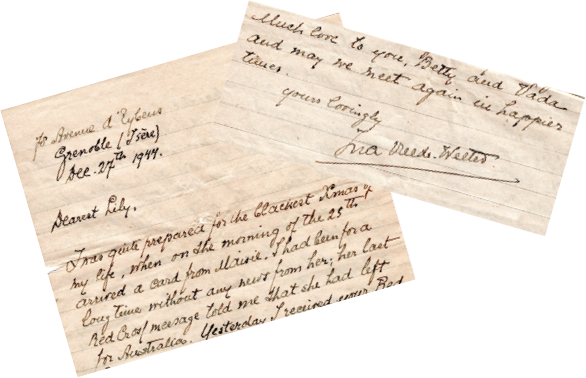 Avenue d'Eybens
Grenoble (Isère)
Dec. 27th 1944.
Dearest Lily,
I was quite prepared for the blackest Xmas of
my life, when on the morning of the 25th
arrived a card from Maisie. I had been for a
long time without any news from her; her last
Red Cross message told me that she had left
for Australia. Yesterday I received your Red
Much love to you, Betty and Vada
and may we meet again in happier
times.
yours lovingly